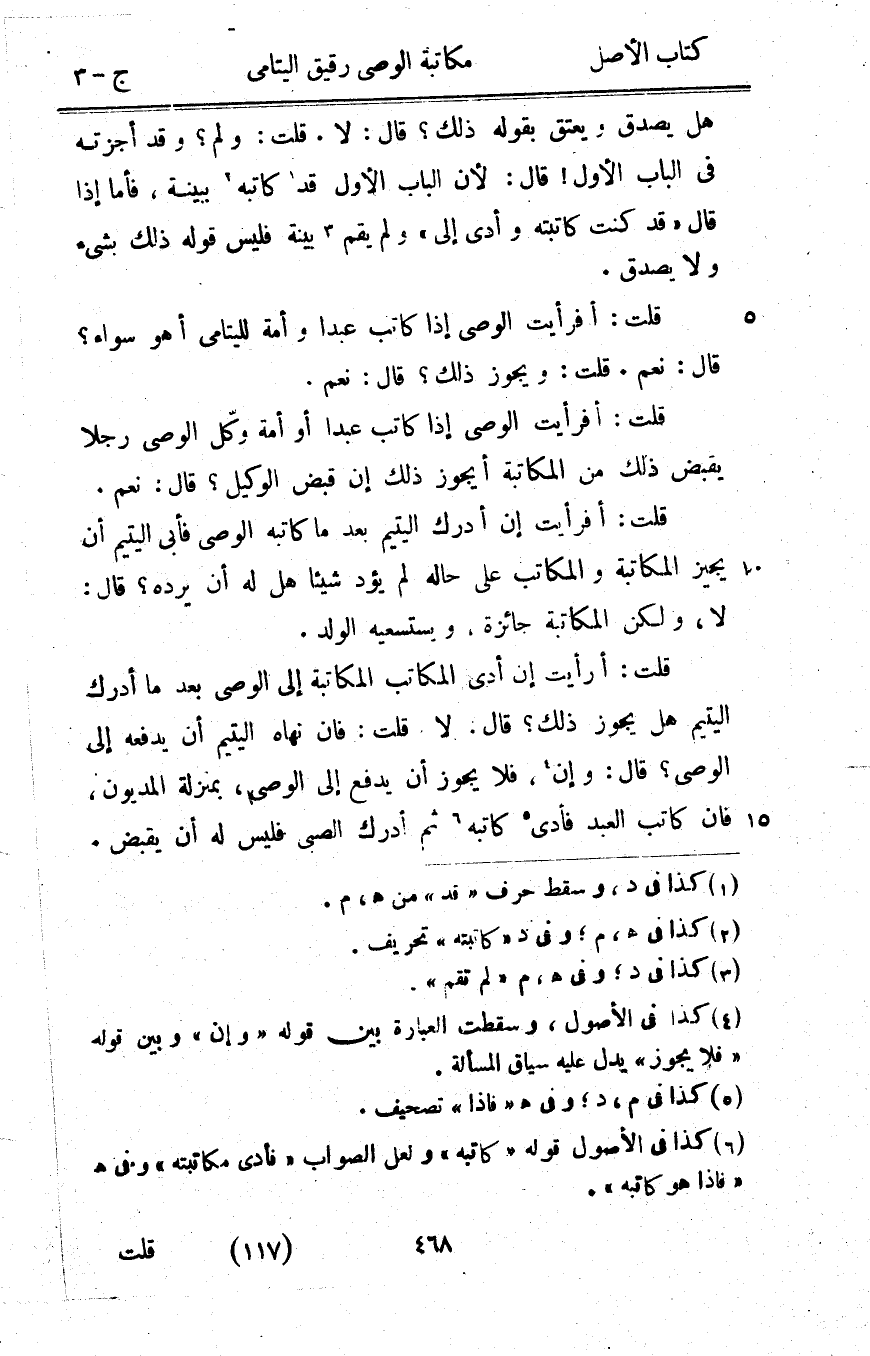 كتاب الأصل مكاتبة الوصى رقيق اليتامى ج - ٣
هل يصدق و يعتق بقوله ذلك؟ قال: لا . قلت: و لم؟ و قد أجزته
فى الباب الأول! قال: لأن الباب الأول قد١ كاتبه٢ ببينة ، فأما إذا
قال « قد كنت كاتبته و أدى إلى » و لم يقم ٣ بينة فليس قوله ذلك بشىء
و لا يصدق .
٥ قلت: أ فرأيت الوصى إذا كاتب عبدا و أمة لليتامى أ هو سواء؟
قال: نعم . قلت: و يجوز ذلك؟ قال: نعم .
قلت: أ فرأيت الوصى إذا كاتب عبدا أو أمة وكّل الوصى رجلا
يقبض ذلك من المكاتبة أ يجوز ذلك إن قبض الوكيل؟ قال: نعم .
قلت: أ فرأيت إن أدرك اليتيم بعد ما كاتبه الوصى فأبى اليتيم أن
١٠ يجيز المكاتبة و المكاتب على حاله لم يؤد شيئا هل له أن يرده؟ قال:
لا ، و لكن المكاتبة جائزة . و يستسعيه الولد .
قلت: أ رأيت إن أدى المكاتب المكاتبة إلى الوصى بعد ما أدرك
اليتيم هل يجوز ذلك؟ قال . لا . قلت: فان نهاه اليتيم أن يدفعه إلى
الوصى؟ قال: و إن٤ ، فلا يجوز أن يدفع إلى الوصى ، بمنزلة المديون ،
١٥ فان كاتب العبد فأدى٥ كاتبه٦ ثم أدرك الصبى فليس له أن يقبض .
(١) كذا فى د ، و سقط حرف « قد » من ه ، م .
(٢) كذا فى ه ، م ؛ و فى د « كاتبته » تحريف .
(٣) كذا فى د ؛ و فى ه ، م « لم تقم » .
(٤) كذا فى الأصول ، و سقطت العبارة بين قوله « و إن » و بين قوله
« فلا يجوز » يدل عليه سياق المسألة .
(٥) كذا فى م ، د ؛ و فى ه « فاذا » تصحيف .
(٦) كذا فى الأصول قوله « كاتبه » و لعل الصواب « فأدى مكاتبته » و فى ه
« فاذا هو كاتبه » .
٤٦٨ (١١٧) قلت